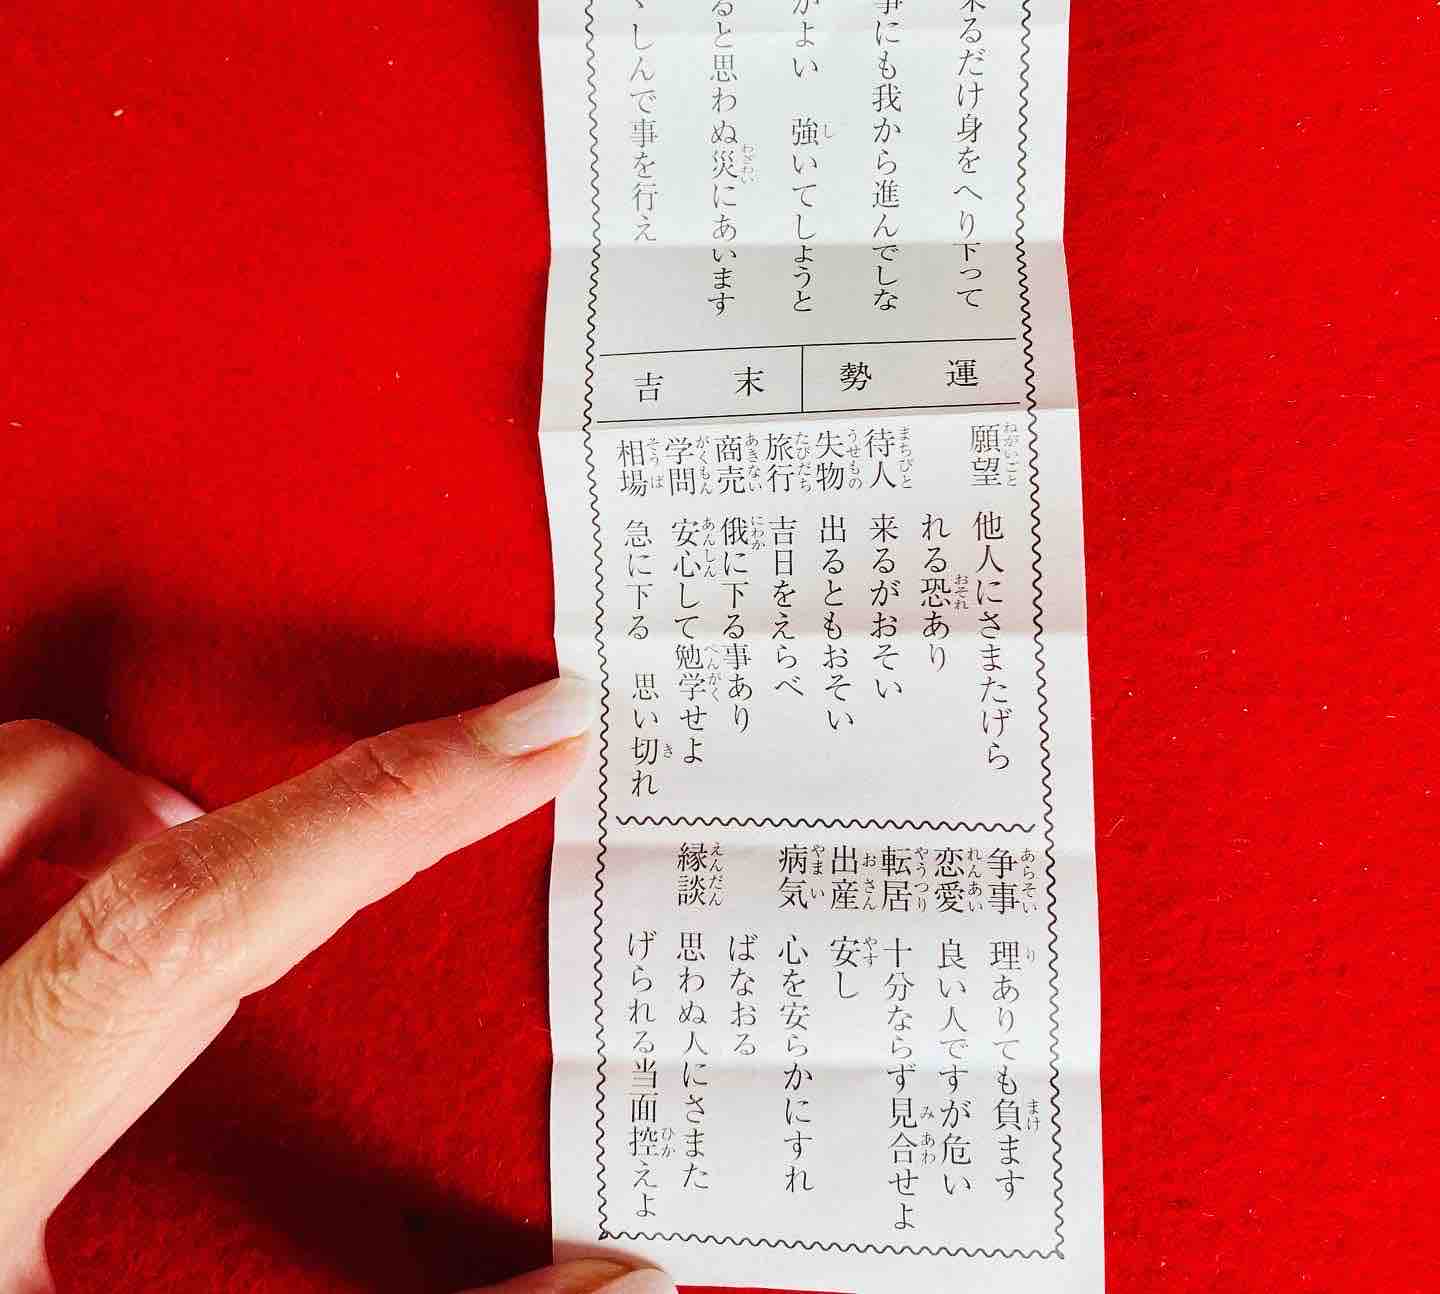 来るだけ身をへり下って
事にも我から進んでしな
がよい　強いてしようと
ると思わぬ災にあいます
しんで事を行え
運勢　末吉
願望　他人にさまたげら
れる恐あり
待人　来るがおそい
失物　出るともおそい
旅行　吉日をえらべ
商売　俄に下る事あり
学問　安心して勉学せよ
相場　急に下る　思い切れ
争事　理ありても負ます
恋愛　良い人ですが危い
転居　十分ならず見合せよ
出産　安し
病気　心を安らかにすれ
ばなおる
縁談　思わぬ人にさまた
げられる当面控えよ